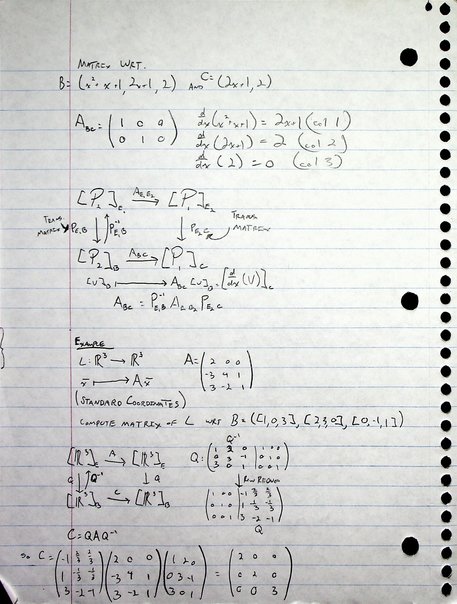 MATRIX WRT.
B = (x²+x+1, 2x+1, 2) AND C = (2x+1, 2)
A_BC = ( 1 0 0 / 0 1 0 )
d/dx (x²+x+1) = 2x+1 (col 1)
d/dx (2x+1) = 2 (col 2)
d/dx (2) = 0 (col 3)
[P₂]_E₁ → A_E₁E₂ [P₁]_E₂
TRANS MATRIX P_E₁B P⁻¹_E₁B P_E₂C TRANS MATRIX
[P₂]_B → A_BC [P₁]_C
[V]_B ↦ A_BC [V]_B = [d/dx (V)]_C
A_BC = P⁻¹_E₁B A_E₁E₂ P_E₂C
EXAMPLE
L: ℝ³ → ℝ³ A = ( 2 0 0 / -3 4 1 / 3 -2 1 )
x̄ ↦ A x̄
(STANDARD COORDINATES)
COMPUTE MATRIX OF L WRT B = ([1,0,3], [2,3,0], [0,-1,1])
Q⁻¹
[ℝ³]_E → A [ℝ³]_E Q: ( 1 2 0 | 1 0 0 / 0 3 -1 | 0 1 0 / 3 0 1 | 0 0 1 )
Q Q⁻¹ Q ROW REDUCE
[ℝ³]_B → C [ℝ³]_B ( 1 0 0 | -1 2/3 2/3 / 0 1 0 | 1 -1/3 -1/3 / 0 0 1 | 3 -2 -1 )
Q
C = QAQ⁻¹
SO C = ( -1 2/3 2/3 / 1 -1/3 -1/3 / 3 -2 -1 ) ( 2 0 0 / -3 4 1 / 3 -2 1 ) ( 1 2 0 / 0 3 -1 / 3 0 1 ) = ( 2 0 0 / 0 2 0 / 0 0 3 )